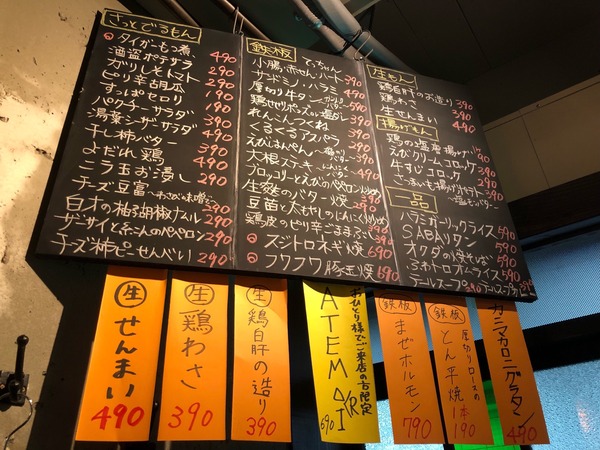 さっとでるもん
タイガーもつ煮 490
酒盗ポテサラ 290
がりしそトマト 290
ピリ辛胡瓜 190
すっぱセロリ 190
パクチーサラダ 390
湯葉シーザーサラダ 490
干し柿バター 390
よだれ鶏 490
ニラ玉お湯し 290
チーズ豆富
白才の柚子胡椒ナムル 290
ザーサイとねこんのペペロン 290
チーズ柿ピーせんべい 290
鉄板
てっちゃん
小腸・赤せん・ハート 390
サンドミノ・ハラミ 490
厚切り牛タン
鶏せせりポンズor塩ダレ 390
れんこんつくね 390
くるくるアスパラ
えびはんぺん
大根ステーキ
ブロッコリーとえびのペペロン炒め
生窯のバター焼 290
豆苗と大もやしのにんにく炒め
鶏皮のピリ辛ごまぶし 390
スジトロネギ焼 690
フワフワ豚玉焼 590
生もん
鶏白肝のお造り 390
鶏わさ 390
生せんまい 490
揚げもん
鶏の塩唐揚げ
えびクリームコロッケ
牛すじコロッケ 290
さつまいも揚げ
一品
ハラミガーリックライス 590
SABAリタン 590
オクダの焼そば 590
ふわトロオムライス 590
テールスープ
生
せんまい
490
生
鶏わさ
390
生
鶏白肝の造り
390
おひとり様でご来店の方限定
ATEMAI/R
690
鉄板
まぜホルモン
790
鉄板
厚切りロースの
とん平焼
1本
190
カニマカロニグラタン
490